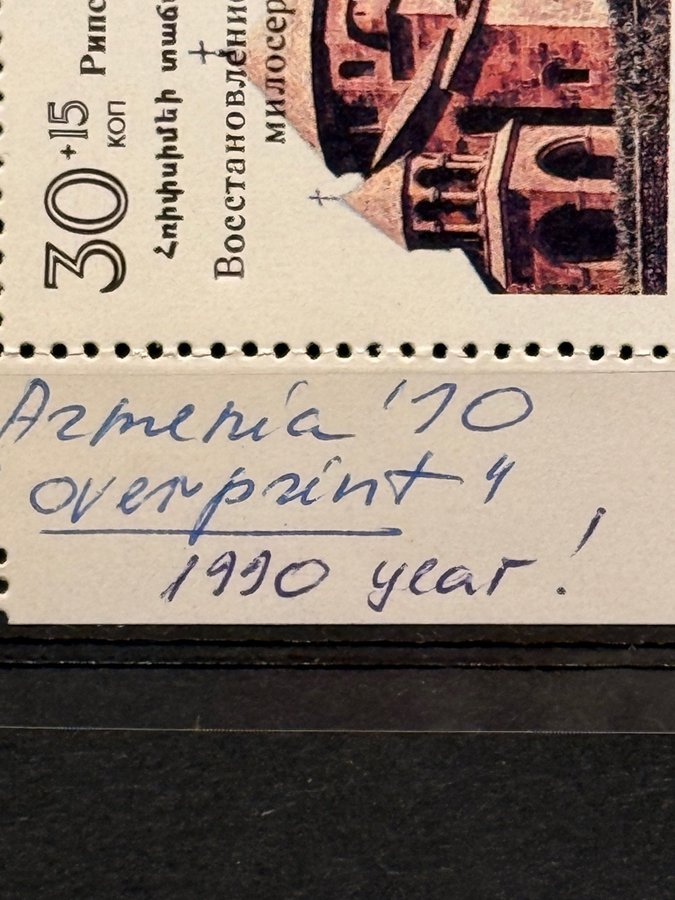 30 +15
коп
Рипс
Հռիփսիմեի տաճ
Восстановление
милосер
Armenia '10
overprint "
1990 year!